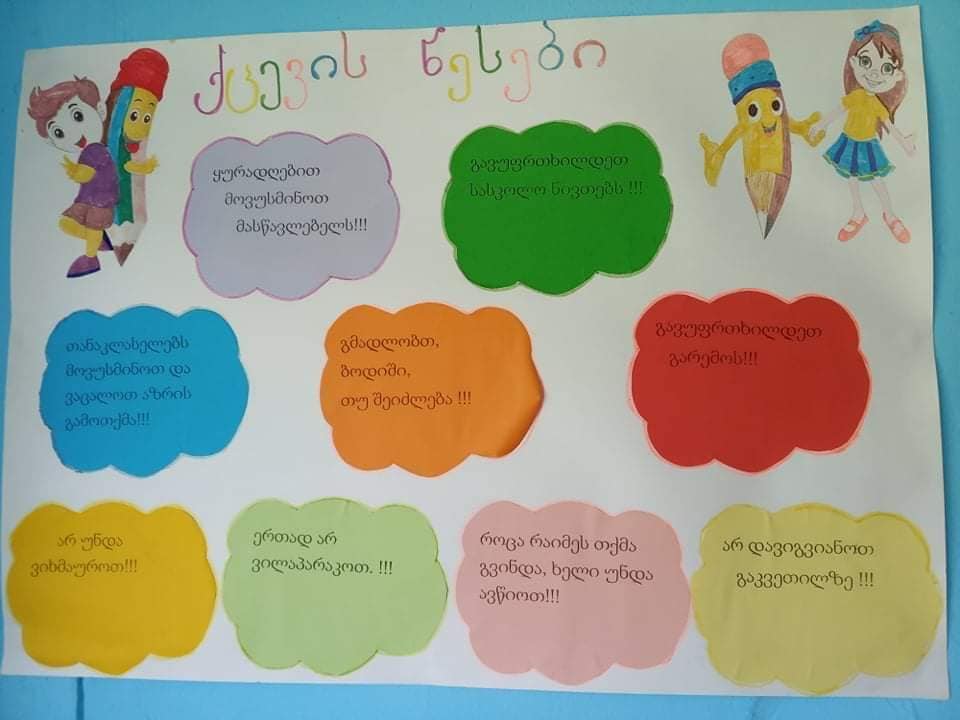 ქცევის წესები
ყურადღებით
მოვუსმინოთ
მასწავლებელს!!!
გავუფრთხილდეთ
სასკოლო ნივთებს !!!
თანაკლასელებს
მოვუსმინოთ და
ვაცალოთ აზრის
გამოთქმა!!!
გმადლობთ,
ბოდიში,
თუ შეიძლება !!!
გავუფრთხილდეთ
გარემოს!!!
არ უნდა
ვიხმაუროთ!!!
ერთად არ
ვილაპარაკოთ. !!!
როცა რაიმეს თქმა
გვინდა, ხელი უნდა
ავწიოთ!!!
არ დავიგვიანოთ
გაკვეთილზე !!!